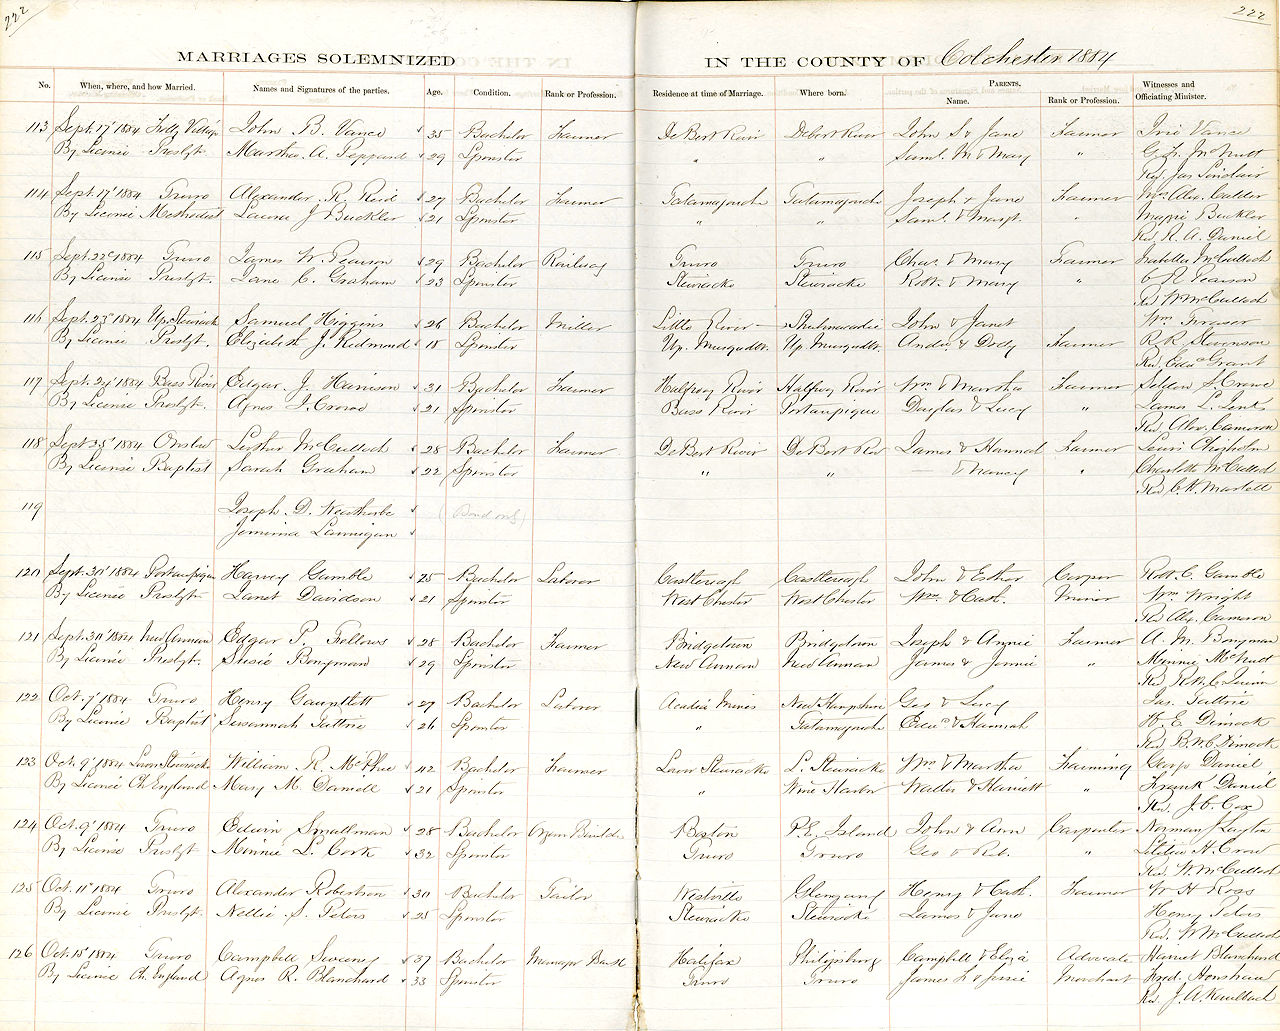 222 222
MARRIAGES SOLEMNIZED IN THE COUNTY OF Colchester 1884
No. When, where, and how Married. Names and Signatures of the parties. Age. Condition. Rank or Profession. Residence at time of Marriage. Where born. PARENTS. Name. Rank or Profession. Witnesses and Officiating Minister.
113 Sept. 17' 1884 Folly Village John B. Vance 35 Bachelor Farmer De Bert River Debert River John S & Jane Farmer Vance
By License Presbyt. Martha A. Peppard 29 Spinster " " Saml. M & Mary " G. F. McNutt
Rev. Jas Sinclair
114 Sept. 17' 1884 Truro Alexander R. Reid 27 Bachelor Farmer Tatamagouche Tatamagouche Joseph & Jane Farmer Mrs Alex.
By License Methodist Laura J Buckler 21 Spinster " " Saml. & Margt. " Maggie Buckler
Rev. R. A. Daniel
115 Sept. 22d 1884 Truro James W. Pearson 29 Bachelor Railway Truro Truro Chas. & Mary Farmer Isabella McCulloch
By License Presbyt. Jane C. Graham 23 Spinster Stewiacke Stewiacke Robt. & Mary " Pearson
Rev W McCulloch
116 Sept. 23d 1884 Up. Stewiacke Samuel Higgins 26 Bachelor Miller Little River Shubenacadie John & Janet Wm.
By License Presbyt. Elizabeth J. Redmond 18 Spinster Up. Musquodt. Up. Musquodt. Andw. & Farmer R. R. Stevenson
Rev. Edw Grant
117 Sept. 24' 1884 Bass River Edgar J. Harrison 31 Bachelor Farmer Halfway River Halfway River Wm & Martha Farmer Crowe
By License Presbyt. Agnes J. Crowe 21 Spinster Bass River Portaupique Douglas & Lucy " James L.
Rev. Alex. Cameron
118 Sept 25' 1884 Onslow Luther McCulloch 28 Bachelor Farmer De Bert River De Bert River James & Hannah Farmer Chisholm
By License Baptist Sarah Graham 22 Spinster " " & Nancy " Charlotte McCulloch
Rev C. H. Martell
119 Joseph D. Weatherbe (Bond only)
Jemima Lannigan
120 Sept. 30' 1884 Portaupique Harvey Gamble 25 Bachelor Laborer Castlereagh Castlereagh John & Esther Cooper Robt. C. Gamble
By License Presbytn. Janet Davidson 21 Spinster West Chester West Chester Wm. & Cath. Miner Wm Wright
Rev Alex. Cameron
121 Sept. 30' 1884 New Annan Edgar P. Fellows 28 Bachelor Farmer Bridgetown Bridgetown Joseph & Annie Farmer A. M. Bonyman
By License Presbyt. Bonyman 29 Spinster New Annan New Annan James & Jennie " Minnie McNutt
Rev R. M. C. Quinn
122 Oct. 7' 1884 Truro Henry Gauntlett 27 Bachelor Laborer Acadia Mines New Hampshire Geo & Lucy Jas. Guthrie
By License Baptist Susannah Guthrie 26 Spinster " Tatamagouche & Hannah E. Dimock
Rev. Dimock
123 Oct. 9' 1884 Lower Stewiacke William R. McPhee 42 Bachelor Farmer Lower Stewiacke L. Stewiacke Wm & Martha Farming George Daniel
By License Ch. England Mary M. Daniell 21 Spinster " Wine Harbor Walter & Harriett " Frank Daniel
Rev. J. C. Cox
124 Oct. 9' 1884 Truro Edwin Smallman 28 Bachelor Organ Builder Boston P. E. Island John & Ann Carpenter Norman J Layton
By License Presbyt Minnie L. Cook 32 Spinster Truro Truro Geo & Reb. " H. Crow
Rev. W. McCulloch
125 Oct. 11' 1884 Truro Alexander Robertson 30 Bachelor Tailor Westville Glengarry Henry & Cath. Farmer W H Ross
By License Presbyt. Nellie S. Peters 25 Spinster Stewiacke Stewiacke James & Jane Henry Peters
Rev. W McCulloch
126 Oct. 15' 1884 Truro Campbell Sweeny 37 Bachelor Manager Bank Halifax Philipsburg Campbell & Eliza Advocate Harriet Blanchard
By License Ch. England Agnes R. Blanchard 33 Spinster Truro Truro James L & Jessie Merchant Fred. Henshaw
Rev. J. A. Kaulbach